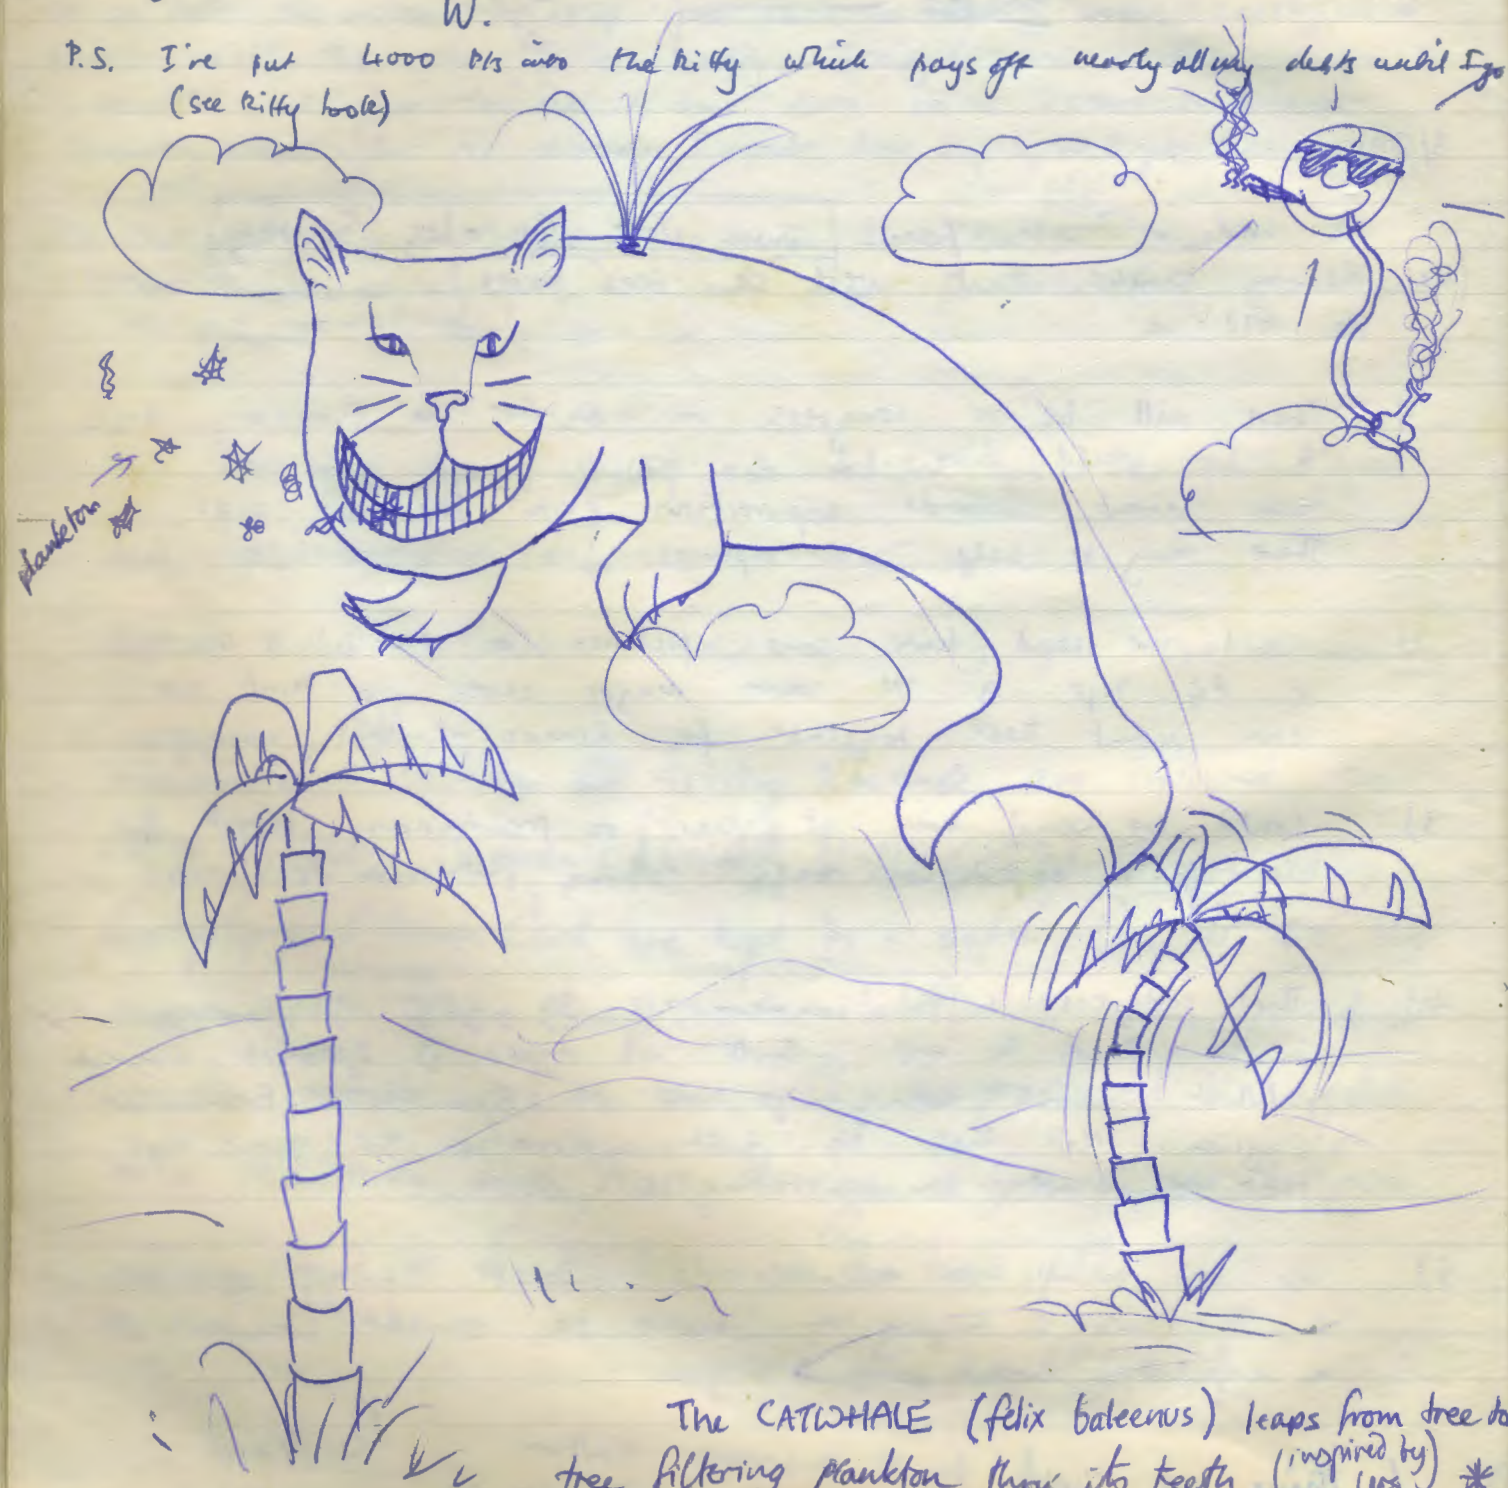 W.
P.S. I've put 4000 Pts into the kitty which pays off nearly all my debts until I go
(see kitty book)
plankton
The CATWHALE (felix baleenus) leaps from tree to
tree filtering plankton thru its teeth (inspired by) *